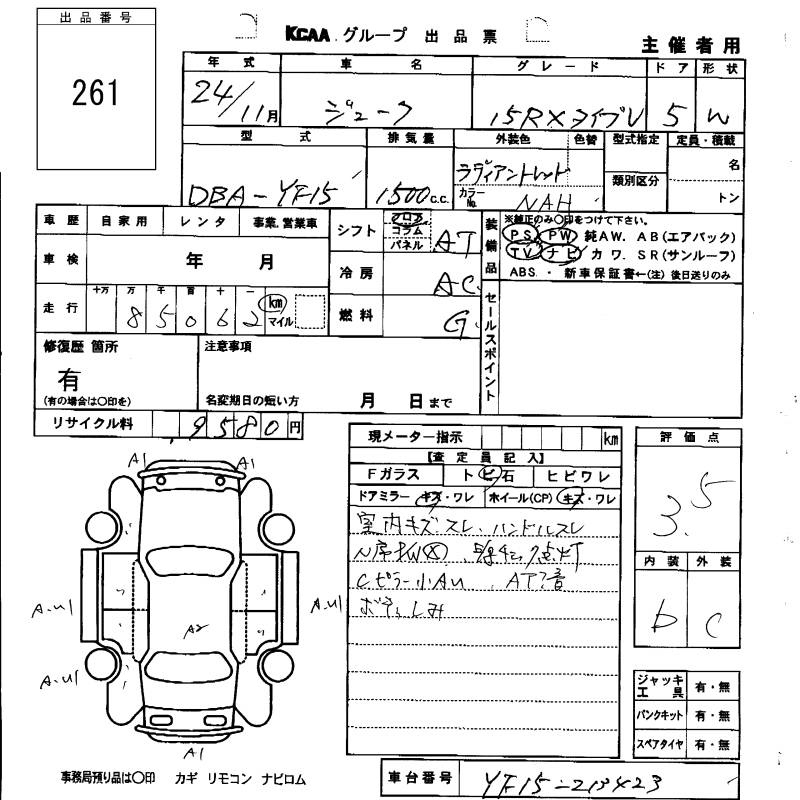 出品番号
261
KCAA グループ 出品票
主催者用
年式 車名 グレード ドア 形状
24/11月 ジューク 15RXタイプV 5 W
型式 排気量 外装色 色替 型式指定 定員・積載
DBA-YF15 1500c.c. ラディアントレッド 類別区分 名
カラーNo. NAH トン
車歴 自家用 レンタ 事業.営業車
シフト フロア コラム パネル AT
装備品
※純正のみ〇印をつけて下さい。
PS PW 純AW. AB(エアバック)
TV ナビ カワ. SR(サンルーフ)
ABS. ・ 新車保証書←(注) 後日送りのみ
車検 年 月
冷房 AC
走行 十万 万 千 百 十 一
85062 km マイル
燃料 G
セールスポイント
修復歴 箇所
有
(有の場合は〇印を)
注意事項
名変期日の短い方 月 日まで
リサイクル料 9580円
現メーター指示 km
【査定員記入】
Fガラス トビ石 ヒビワレ
ドアミラー キズ・ワレ ホイール(CP) キズ・ワレ
室内キズ.スレ、ハンドルスレ
Cピラー小AU、AT?音
評価点
3.5
内装 外装
b C
A1 A1
A.U1 A2 A.U1
A.U1
A1
ジャッキ工具 有・無
パンクキット 有・無
スペアタイヤ 有・無
事務局預り品は〇印 カギ リモコン ナビロム
車台番号 YF15-213423